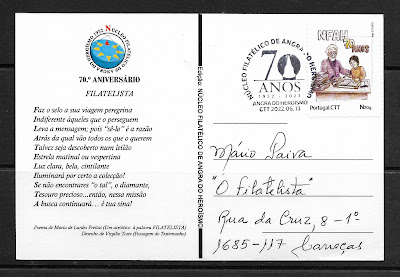 NÚCLEO FILATÉLICO DE ANGRA DO HEROÍSMO 1952
N
70.º ANIVERSÁRIO
FILATELISTA
Faz o selo a sua viagem peregrina
Indiferente àqueles que o perseguem
Leva a mensagem; pois "sê-lo" é a razão
Atrás da qual vão todos os que o querem
Talvez seja descoberto num leilão
Estrela matinal ou vespertina
Luz clara, bela, cintilante
Iluminará por certo a coleção!
Se não encontrares "o tal", o diamante,
Tesouro precioso...então, nessa missão
A busca continuará... é tua sina!
Poema de Maria de Lurdes Freitas (Um acróstico à palavra FILATELISTA)
Desenho de Virgílio Toste (Passagem de Testemunho)
Edição: NÚCLEO FILATÉLICO DE ANGRA DO HEROÍSMO
NÚCLEO FILATÉLICO DE ANGRA DO HEROÍSMO
70
ANOS
1952 - 2022
ANGRA DO HEROÍSMO
CTT 2022.06.13
NFAH
70 ANOS
Portugal CTT
N20g
Mário Paiva
"O Filatelista"
Rua da Cruz, 8-1º
1685-117 Caneças